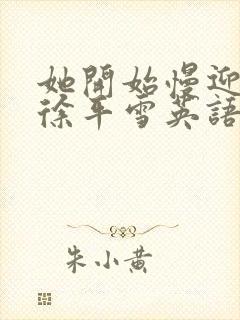 她開始慢迎
徐平雪英語
朱小黄